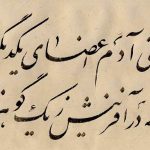 نی آدم اعضای یکدیگ
ه در آفرینش ز یک گوه